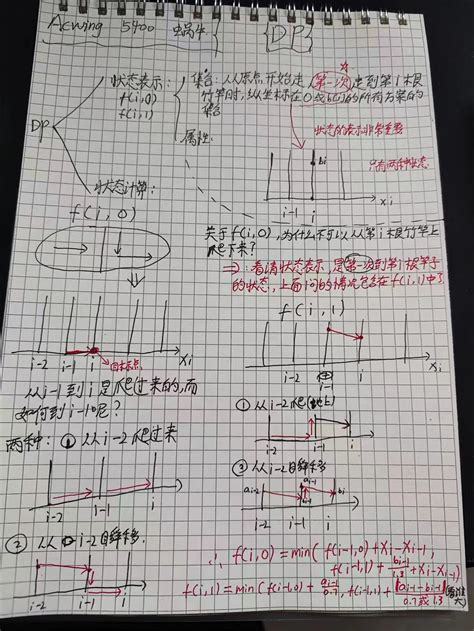 Acwing 5400 蜗牛 {DP}
DP
状态表示: f(i,0) f(i,1)
集合: 从原点开始走(第一次)走到第i根
竹竿时,纵坐标在0或b(i)的所有方案的
集合
属性:
状态的表示非常重要
只有两种状态
bi
i-1 i xi
状态计算:
f(i,0)
关于f(i,0),为什么不可以从第i根竹竿上
爬下来?
⇒: 看清状态表示,是第一次到第i根竿子
的状态,上面问的情况包含在f(i,1)中了
i-2 i-1 i xi
目标点
从i-1到i是爬过来的,而
如何到i-1呢?
两种: ① 从i-2爬过来
i-2 i-1 i
② 从i-2瞬移.
i-2 i-1 i
f(i,1)
i-2 i-1 i xi
① 从i-2爬(地上)
i-2 i-1 i
② 从i-2瞬移
ai-2 ai-1 bi-1 bi
i-2 i-1 i
∴ f(i,0)=min(f(i-1,0)+xi-xi-1,
f(i-1,1)+bi-1/1.3+xi-xi-1)
f(i,1)=min(f(i-1,0)+ai-1/0.7, f(i-1,1)+|ai-1-bi-1|/0.7或1.3)